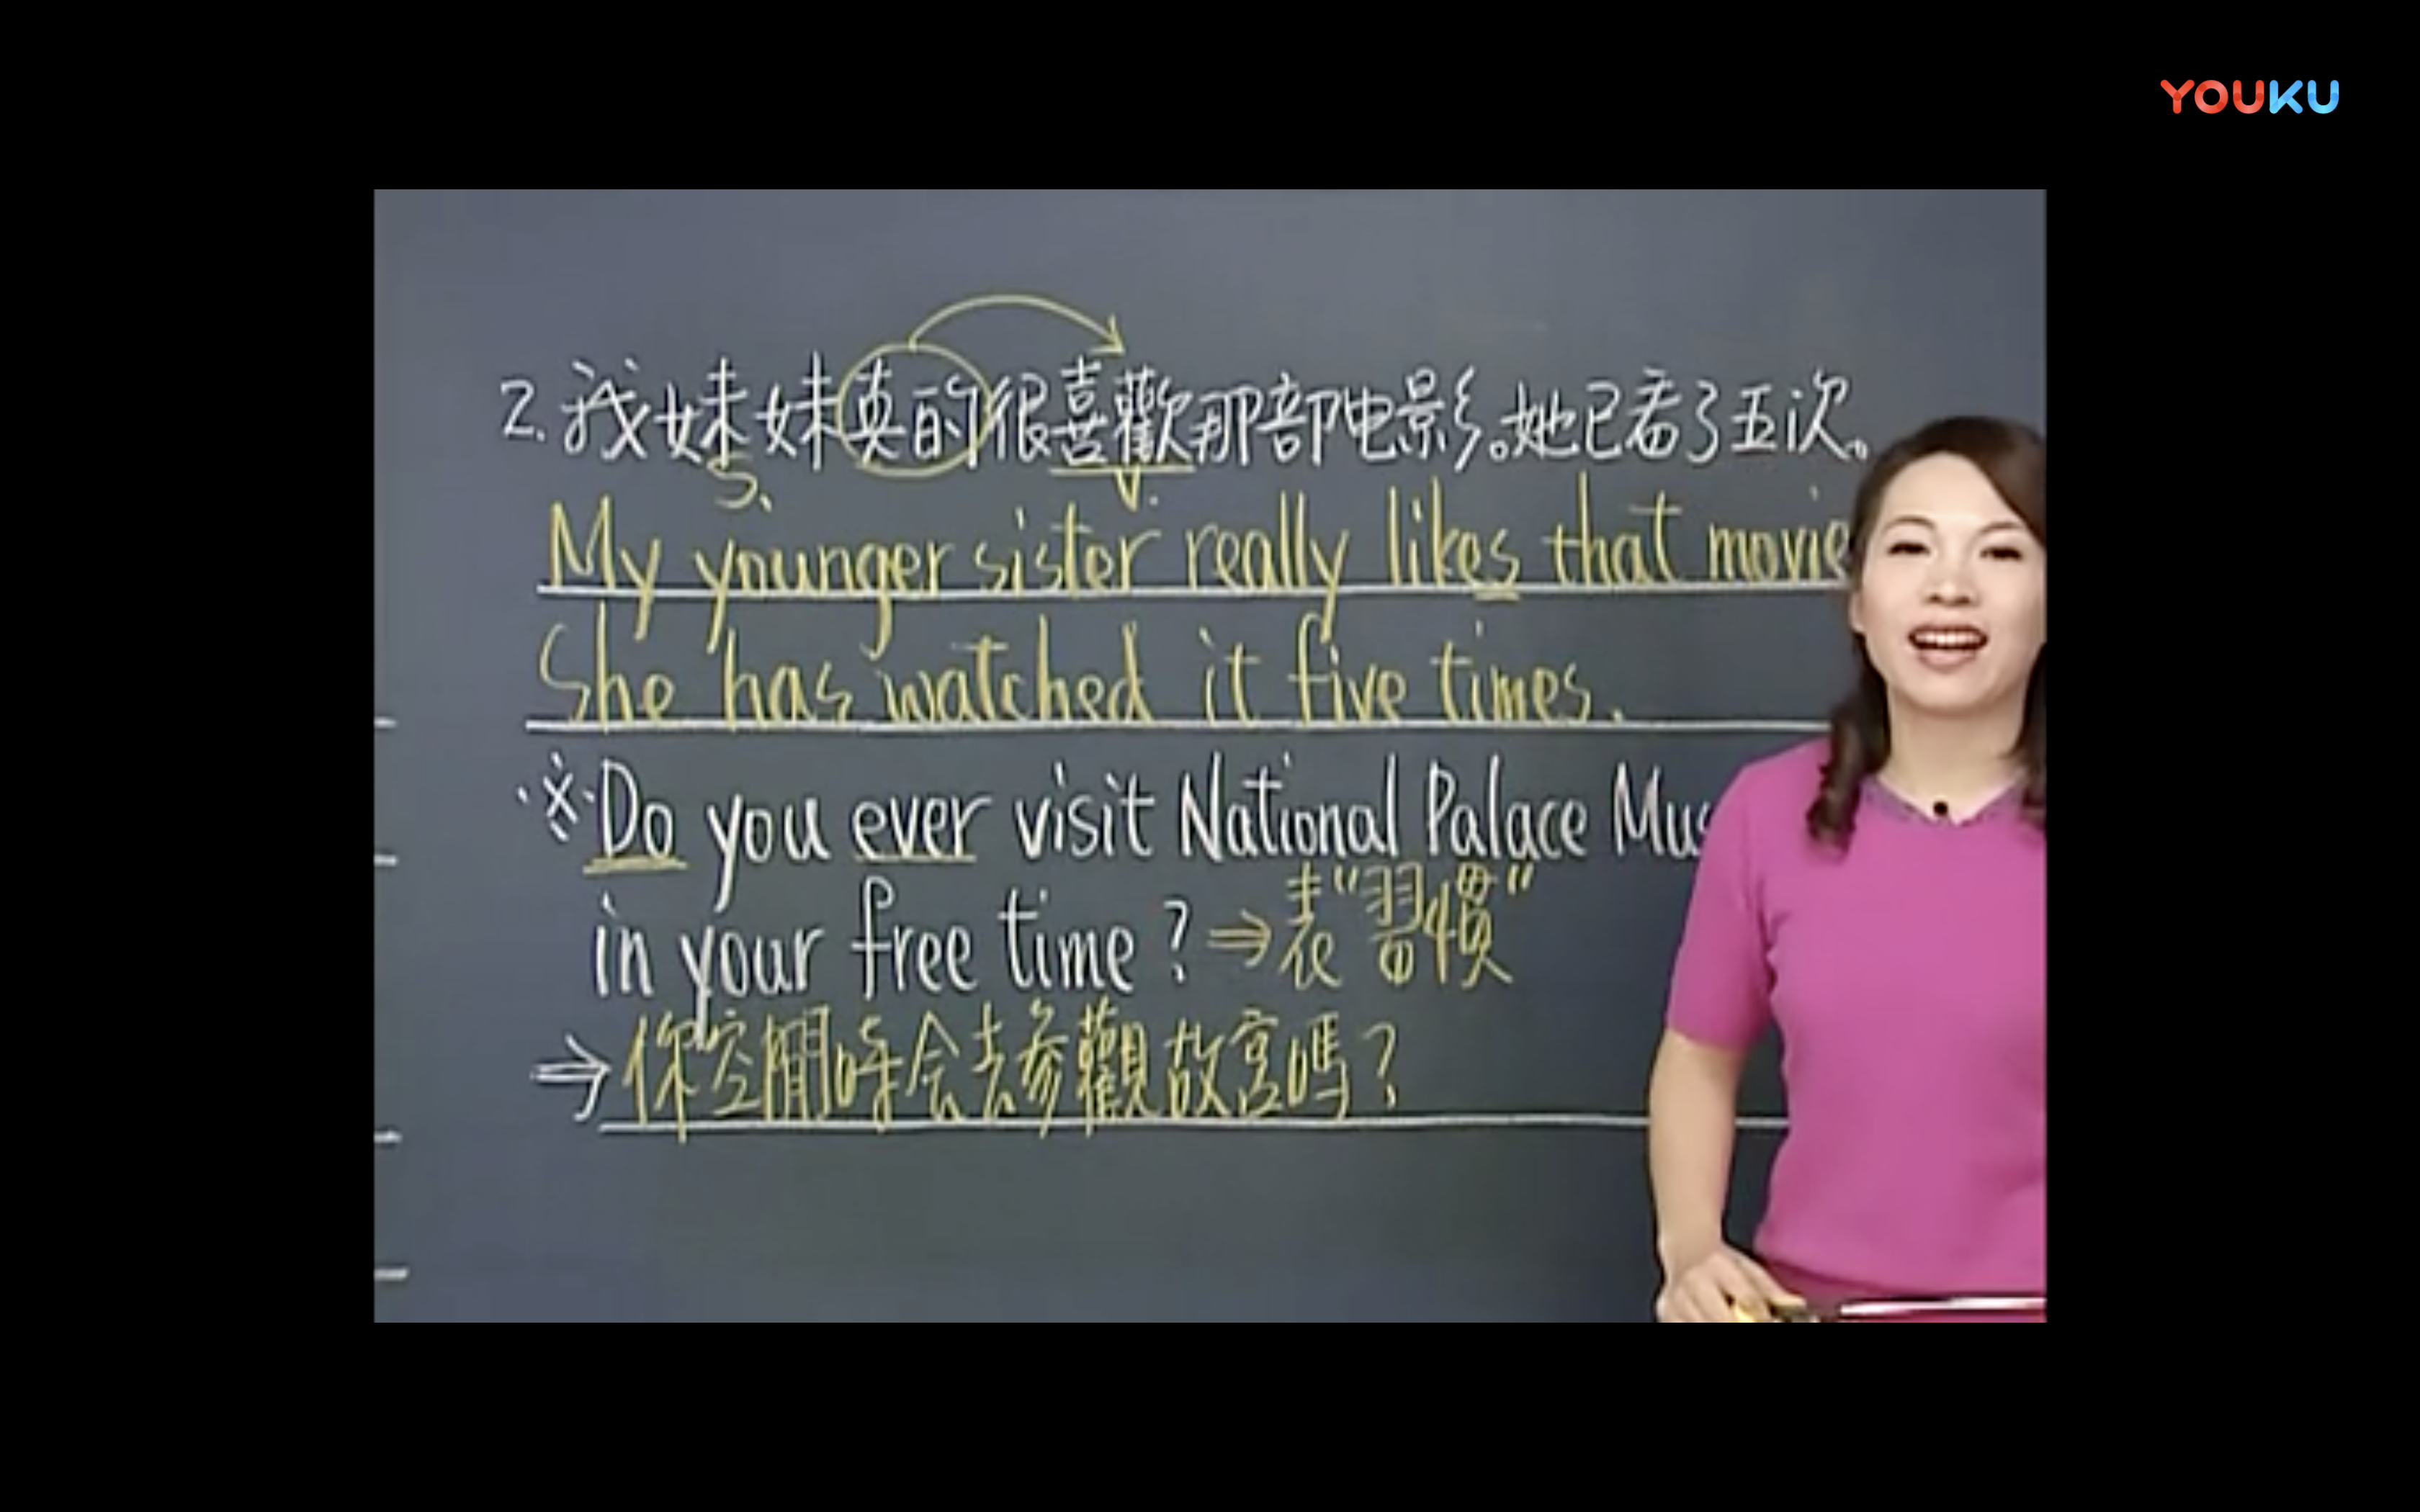 YOUKU
2.我妹妹真的很喜歡那部电影。她已看了五次。
S. V.
My younger sister really likes that movie
She has watched it five times.
※Do you ever visit National Palace Mus
in your free time? ⇒表"習慣"
⇒你空閒時会去參觀故宮嗎?